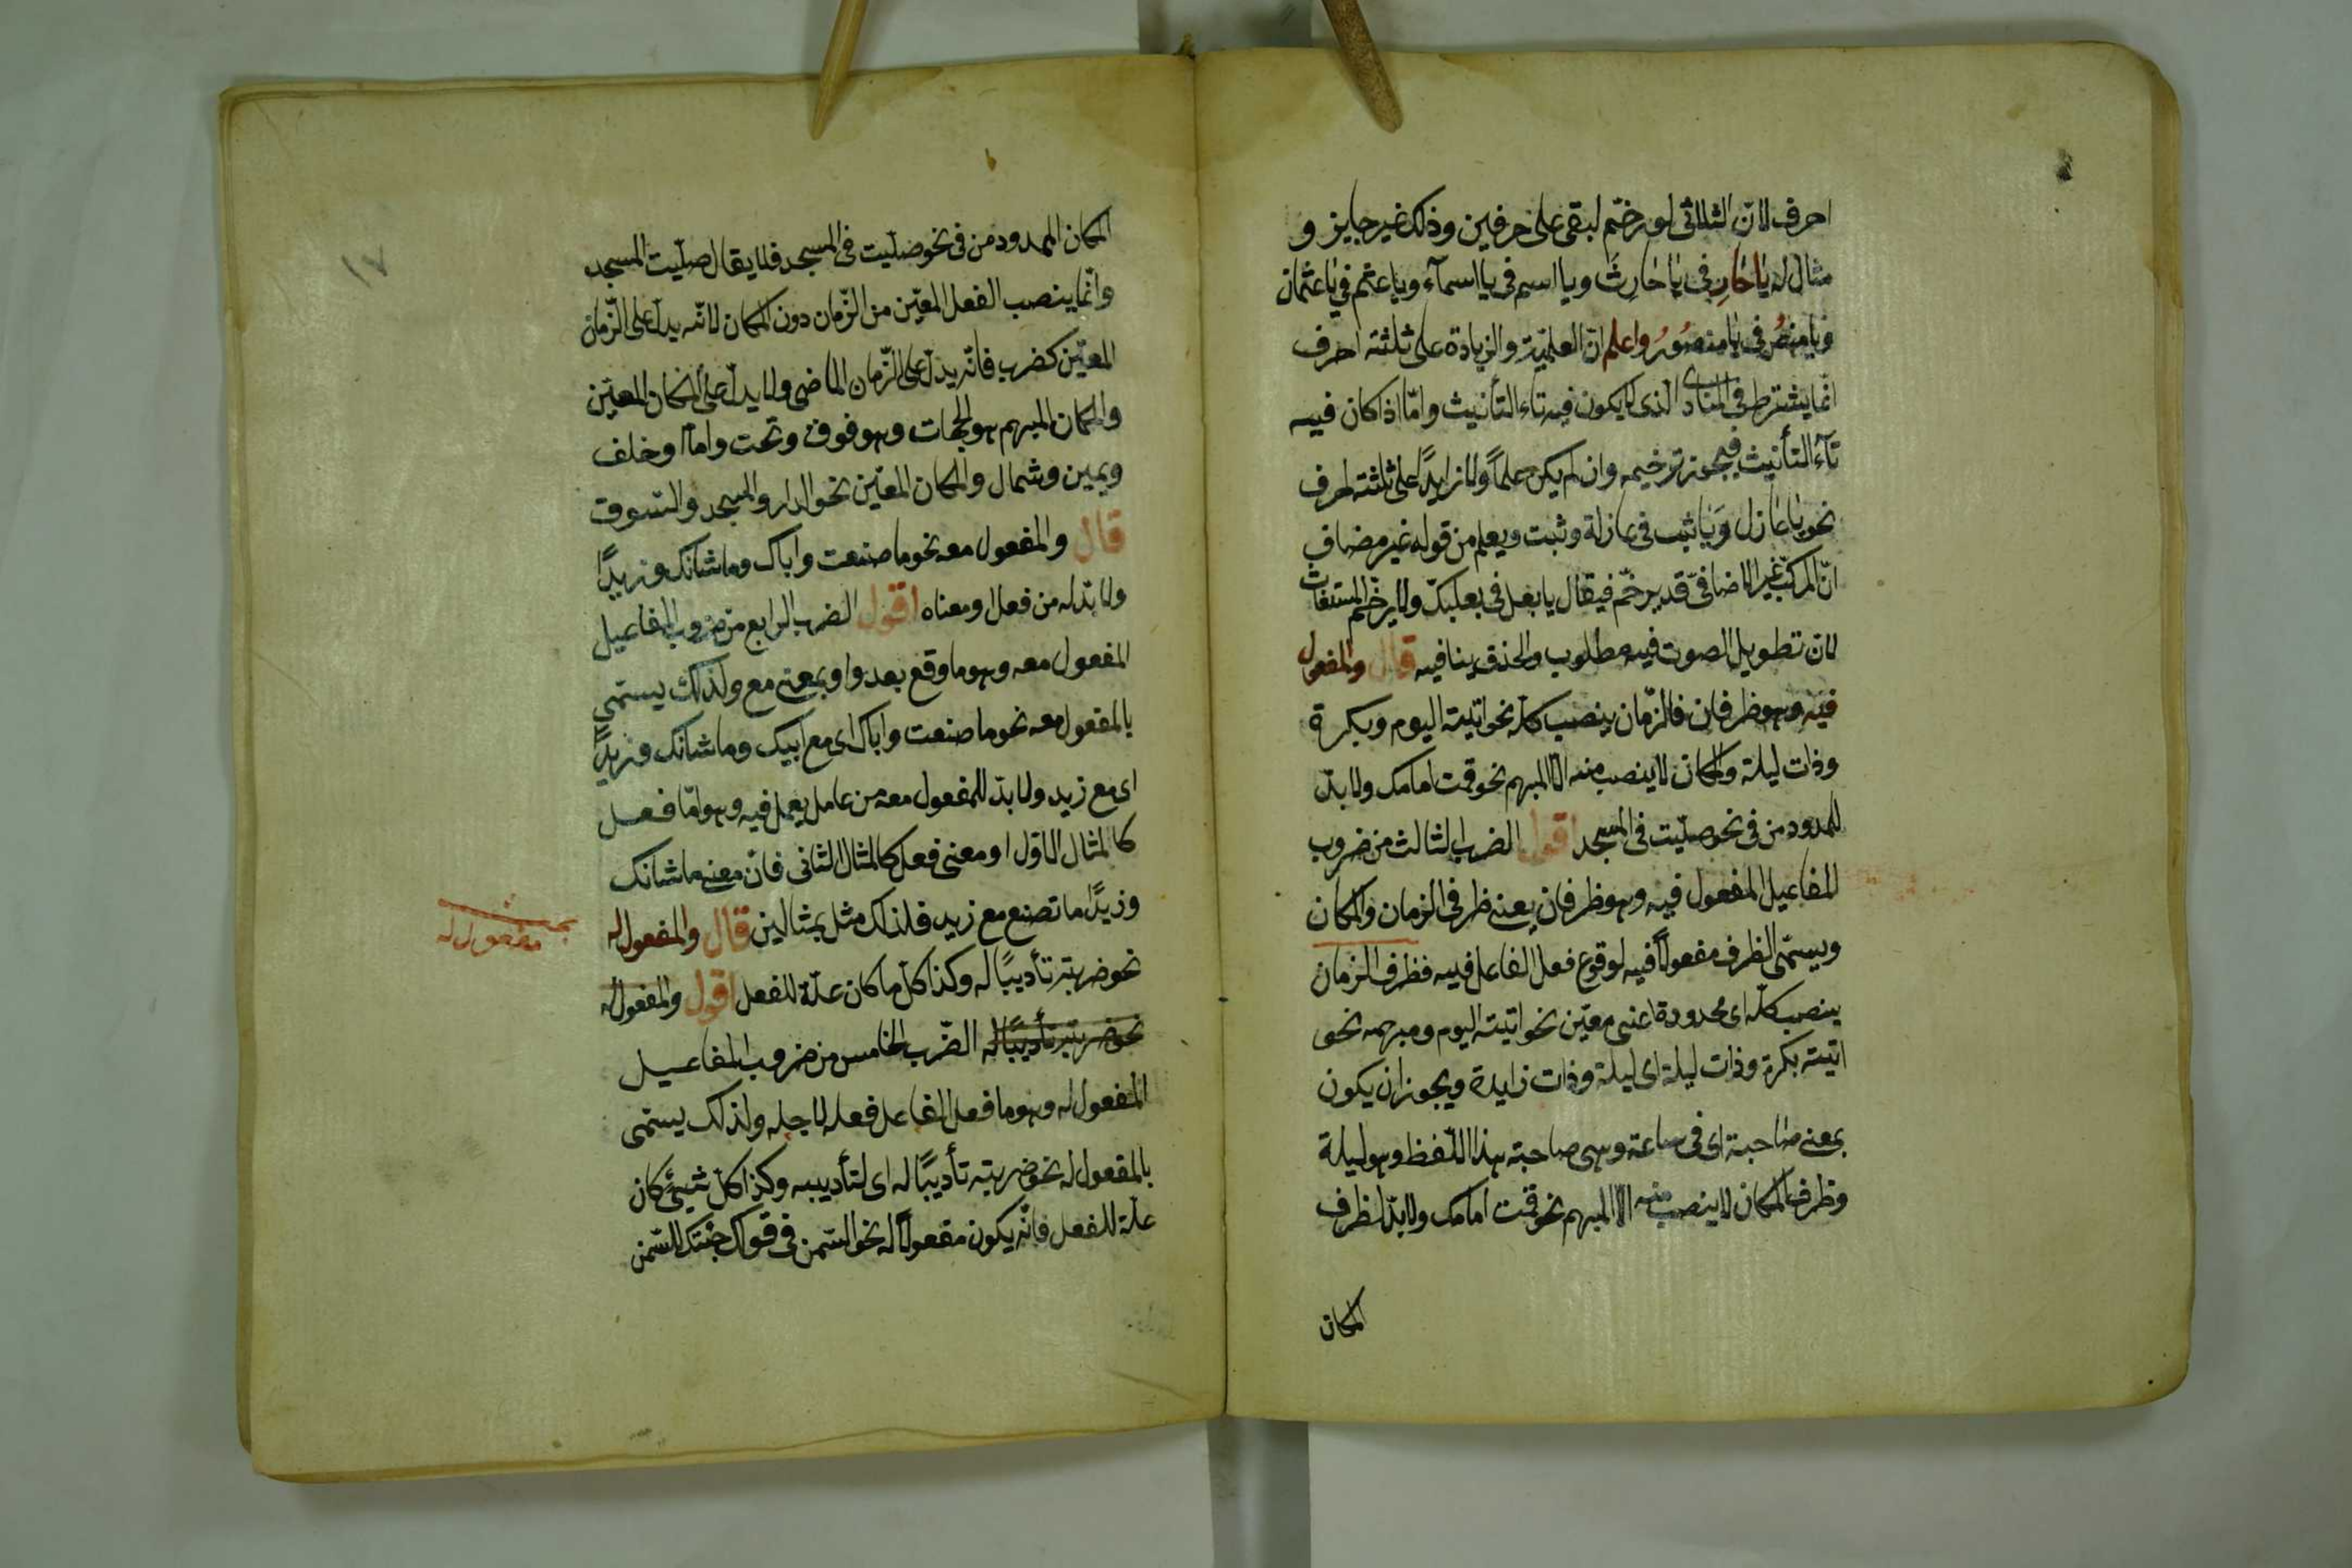 احرف لانّ الثلاثى لو رخّم لبقى على حرفين وذلك غير جايز و
مثال له يا حارِ فى يا حارِثُ ويا اسم فى يا اسمآء ويا عثم فى يا عثمان
ويا منصُ فى يا منصُورُ واعلم انّ العلميّة والزيادة على ثلثة احرف
انّما يشترط فى المنادى الذى لا يكون فيه تاء التأنيث وامّا اذا كان فيه
تآء التأنيث فيجوز ترخيمه وان لم يكن علماً ولا زايدًا على ثلثة احرف
نحو يا عازل وَيا ثبب فى عازلة وثبت ويعلم من قوله غير مضاف
انّ المركّب غير الاضافىّ قد يرخّم فيقال يا بعل فى بعلبكّ ولا يرخّم المستغاث
لانّ تطويل الصوت فيه مطلوب والحذف ينافيه قال والمفعول
فيه وهو ظرفان فالزّمان ينصب كلّه نحو اتيته اليوم وبكرة
وذات ليلة والمكان لا ينصب منه الّا المبهم نحو قمت امامك ولا بدّ
للمحدود من فى نحو صلّيت فى المسجد اقول الضرب الثالث من ضروب
المفاعيل المفعول فيه وهو ظرفان يعنى ظرفى الزمان والمكان
ويسمّى الظرف مفعولاً فيه لوقوع فعل الفاعل فيه فظرف الزمان
ينصب كلّه اى محدودة اعنى معيّن نحو اتيته اليوم ومبهمه نحو
اتيته بكرة وذات ليلة اى ليلة وذات زايدة ويجوز ان يكون
بمعنى صاحبة اى فى ساعة وهى صاحبة هذا اللّفظ وهو ليلة
وظرف المكان لا ينصب منه الّا المبهم نحو قمت امامك ولا بدّ لظرف
المكان
١٧
المكان المحدود من فى نحو صلّيت فى المسجد فلا يقال صلّيت المسجد
وانّما ينصب الفعل المعيّن من الزّمان دون المكان لانّه يدلّ على الزّمان
المعيّن كضرب فانّه يدلّ على الزّمان الماضى ولا يدلّ على المكان المعيّن
والمكان المبهم هو الجهات وهو فوق وتحت وامام وخلف
ويمين وشمال والمكان المعيّن نحو الدار والمسجد والسّوق
قال والمفعول معه نحو ما صنعت واباك وما شانك وزيدًا
ولا بدّ له من فعل او معناه اقول الضرب الرابع من ضروب المفاعيل
المفعول معه وهو ما وقع بعد واو بمعنى مع ولذلك يسمّى
بالمفعول معه نحو ما صنعت واباك اى مع ابيك وما شانك وزيدًا
اى مع زيد ولا بدّ للمفعول معه من عامل يعمل فيه وهو امّا فعل
كالمثال الاوّل او معنى فعل كالمثال الثانى فانّ معنى ما شانك
وزيدًا ما تصنع مع زيد فلذلك مثل بمثالين قال والمفعول له
بحث مفعول له
نحو ضربته تأديبًا له وكذا كلّ ما كان علّة للفعل اقول والمفعول له
نحو ضربته تأديبًا له الضّرب الخامس من ضروب المفاعيل
المفعول له وهو ما فعل الفاعل فعله لاجله ولذلك يسمّى
بالمفعول له نحو ضربته تأديبًا له اى لتأديبه وكذا كلّ شيئ كان
علّة للفعل فانّه يكون مفعولاً له نحو السّمن فى قولك جئتك للسّمن